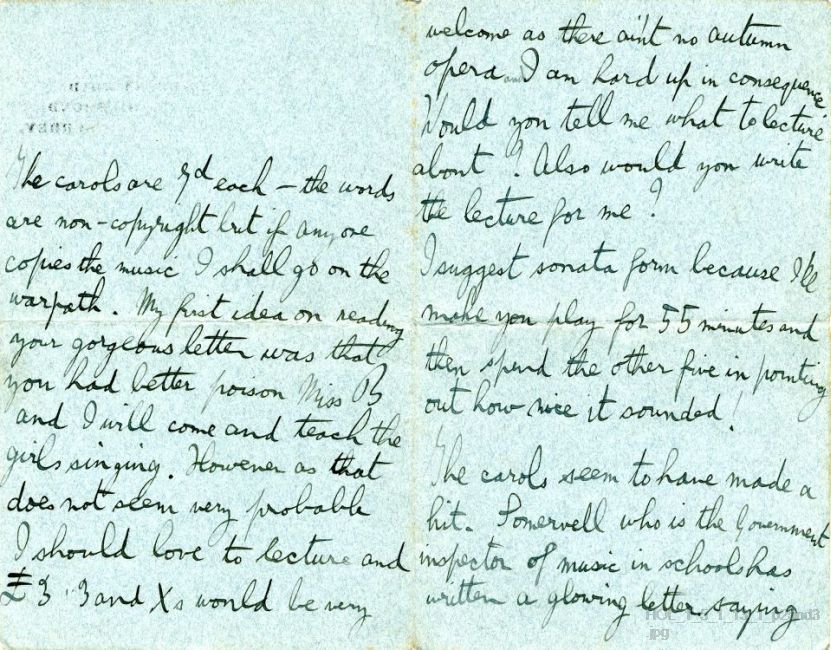 The carols are 7d each – the words
are non-copyright but if anyone
copies the music I shall go on the
warpath. My first idea on reading
your gorgeous letter was that
you had better poison Miss B
and I will come and teach the
girls singing. However as that
does not seem very probable
I should love to lecture and
£3 3 and Xs would be very
welcome as there ain't no autumn
opera and I am hard up in consequence
Would you tell me what to lecture
about? Also would you write
the lecture for me?
I suggest sonata form because I'll
make you play for 55 minutes and
then spend the other five in pointing
out how nice it sounded.
The carols seem to have made a
hit. Somervell who is the Government
inspector of music in schools has
written a glowing letter, saying